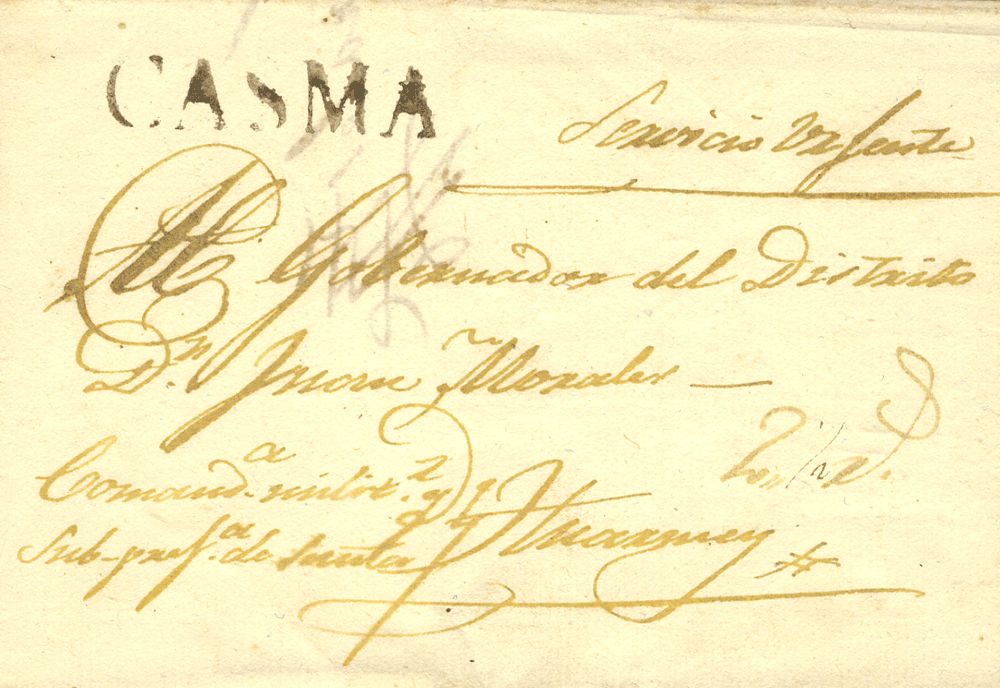 CASMA
Servicio Urgente
Al Gobernador del Distrito
Dn. Juan Morales
Comanda. milit.r y
Sub-prefa. de Santa
Huarmey